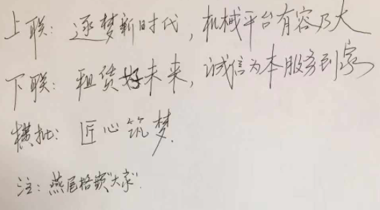 上联：逐梦新时代，机械平台有容乃大
下联：租赁好未来，诚信为本服务到家
横批：匠心筑梦.
注：燕尾格嵌"大家"